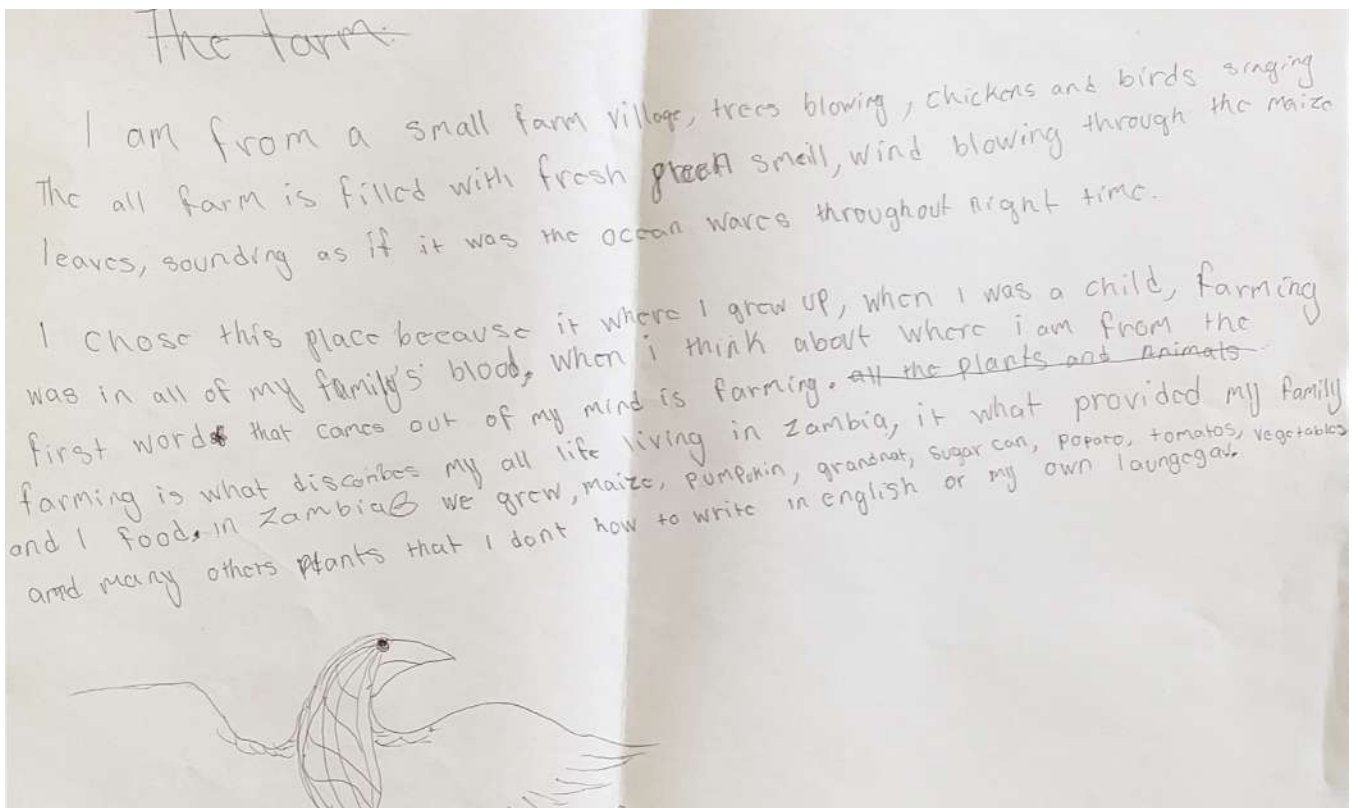 The farm.
I am from a small farm village, trees blowing, chickens and birds singing
The all farm is filled with fresh green smell, wind blowing through the maize
leaves, sounding as if it was the ocean waves throughout night time.
I chose this place because it where I grew up, when I was a child, farming
was in all of my family's blood, when i think about where i am from the
first word that comes out of my mind is farming. all the plants and animals
farming is what discribes my all life living in Zambia, it what provided my family
and I food, in Zambia we grew, maize, pumpkin, grandnat, sugar can, popato, tomatos, vegetables
and many others plants that I dont how to write in english or my own laungegar.